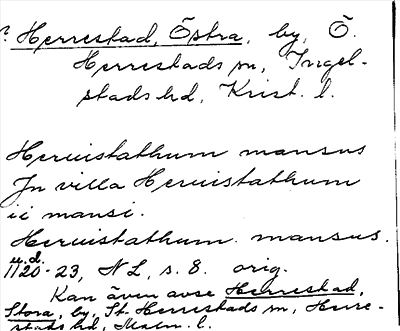 ? Herrestad, Östra, by, Ö.
Herrestads sn, Ingel-
stads hd, Krist. l.
Heruistathum mansus
Jn villa Heruistathum
ii mansi.
Heruistathum mansus.
u.d.
1120-23, NL, s. 8. orig.
Kan även avse Herrestad,
Stora, by, St. Herrestads sn, Herre-
stads hd, Malm. l.